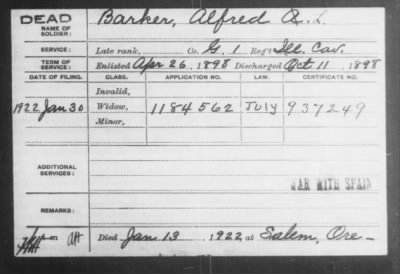 DEAD
NAME OF SOLDIER: Barker, Alfred
SERVICE: Late rank, Co. G, 1 Reg't Ill. Cav.
TERM OF SERVICE: Enlisted Apr 26, 1898 Discharged Oct 11, 1898
DATE OF FILING. CLASS. APPLICATION NO. LAW. CERTIFICATE NO.
Invalid,
1922 Jan 30 Widow, 1184562 July 937249
Minor,
ADDITIONAL SERVICES:
WAR WITH SPAIN
REMARKS:
Died Jan 13, 1922, at Salem, Ore-